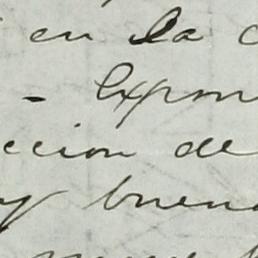 en la c
- Expon
ccion de
y buen